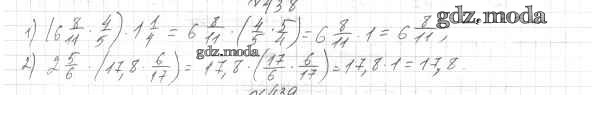 №438
1) (6 8/11 · 4/5) · 1 1/4 = 6 8/11 · (4/5 · 5/4) = 6 8/11 · 1 = 6 8/11,
gdz.moda
gdz.moda
2) 2 5/6 · (17,8 · 6/17) = 17,8 · (17/6 · 6/17) = 17,8 · 1 = 17,8.
№439